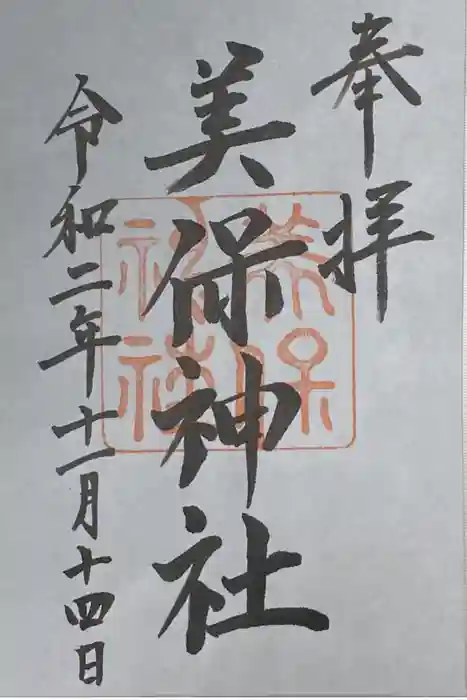 奉拝
美保神社
美保
神社
令和二年十一月十四日